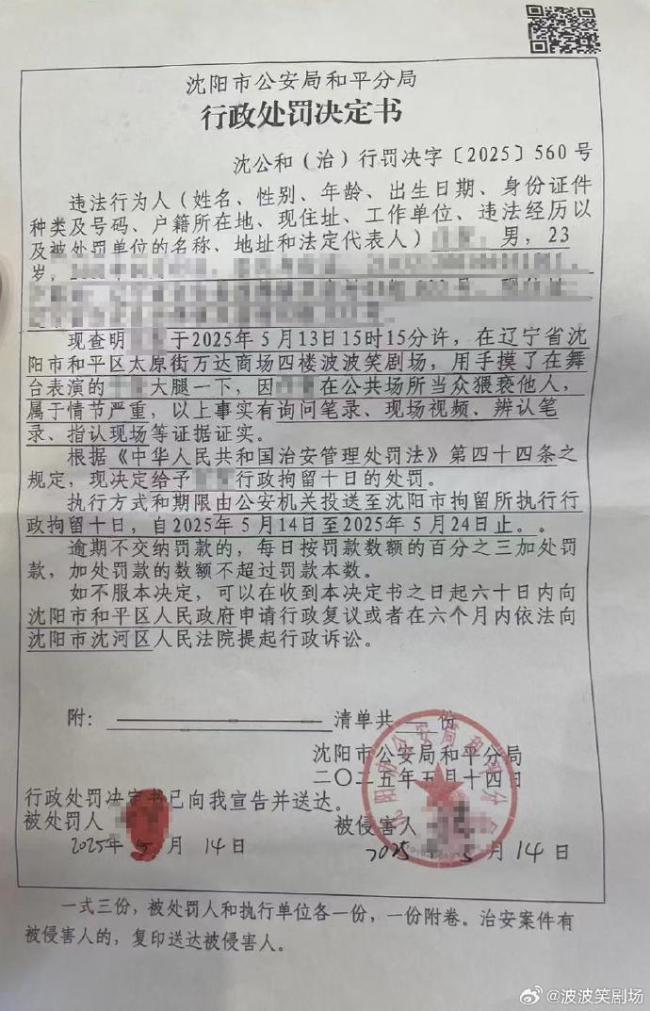 沈阳市公安局和平分局
行政处罚决定书
沈公和（治）行罚决字〔2025〕560号
违法行为人（姓名、性别、年龄、出生日期、身份证件
种类及号码、户籍所在地、现住址、工作单位、违法经历以
及被处罚单位的名称、地址和法定代表人）男，23
岁，
现查明于2025年5月13日15时15分许，在辽宁省沈
阳市和平区太原街万达商场四楼波波笑剧场，用手摸了在舞
台表演的大腿一下，因在公共场所当众猥亵他人，
属于情节严重，以上事实有询问笔录、现场视频、辨认笔
录、指认现场等证据证实。
根据《中华人民共和国治安管理处罚法》第四十四条之
规定，现决定给予行政拘留十日的处罚。
执行方式和期限由公安机关投送至沈阳市拘留所执行行
政拘留十日，自2025年5月14日至2025年5月24日止。。
逾期不交纳罚款的，每日按罚款数额的百分之三加处罚
款，加处罚款的数额不超过罚款本数。
如不服本决定，可以在收到本决定书之日起六十日内向
沈阳市和平区人民政府申请行政复议或者在六个月内依法向
沈阳市沈河区人民法院提起行政诉讼。
附：清单共 份
沈阳市公安局和平分局
二〇二五年五月十四日
行政处罚决定书已向我宣告并送达。
被处罚人 被侵害人
2025年5月14日 2025 5月14日
一式三份，被处罚人和执行单位各一份，一份附卷。治安案件有
被侵害人的，复印送达被侵害人。
@波波笑剧场